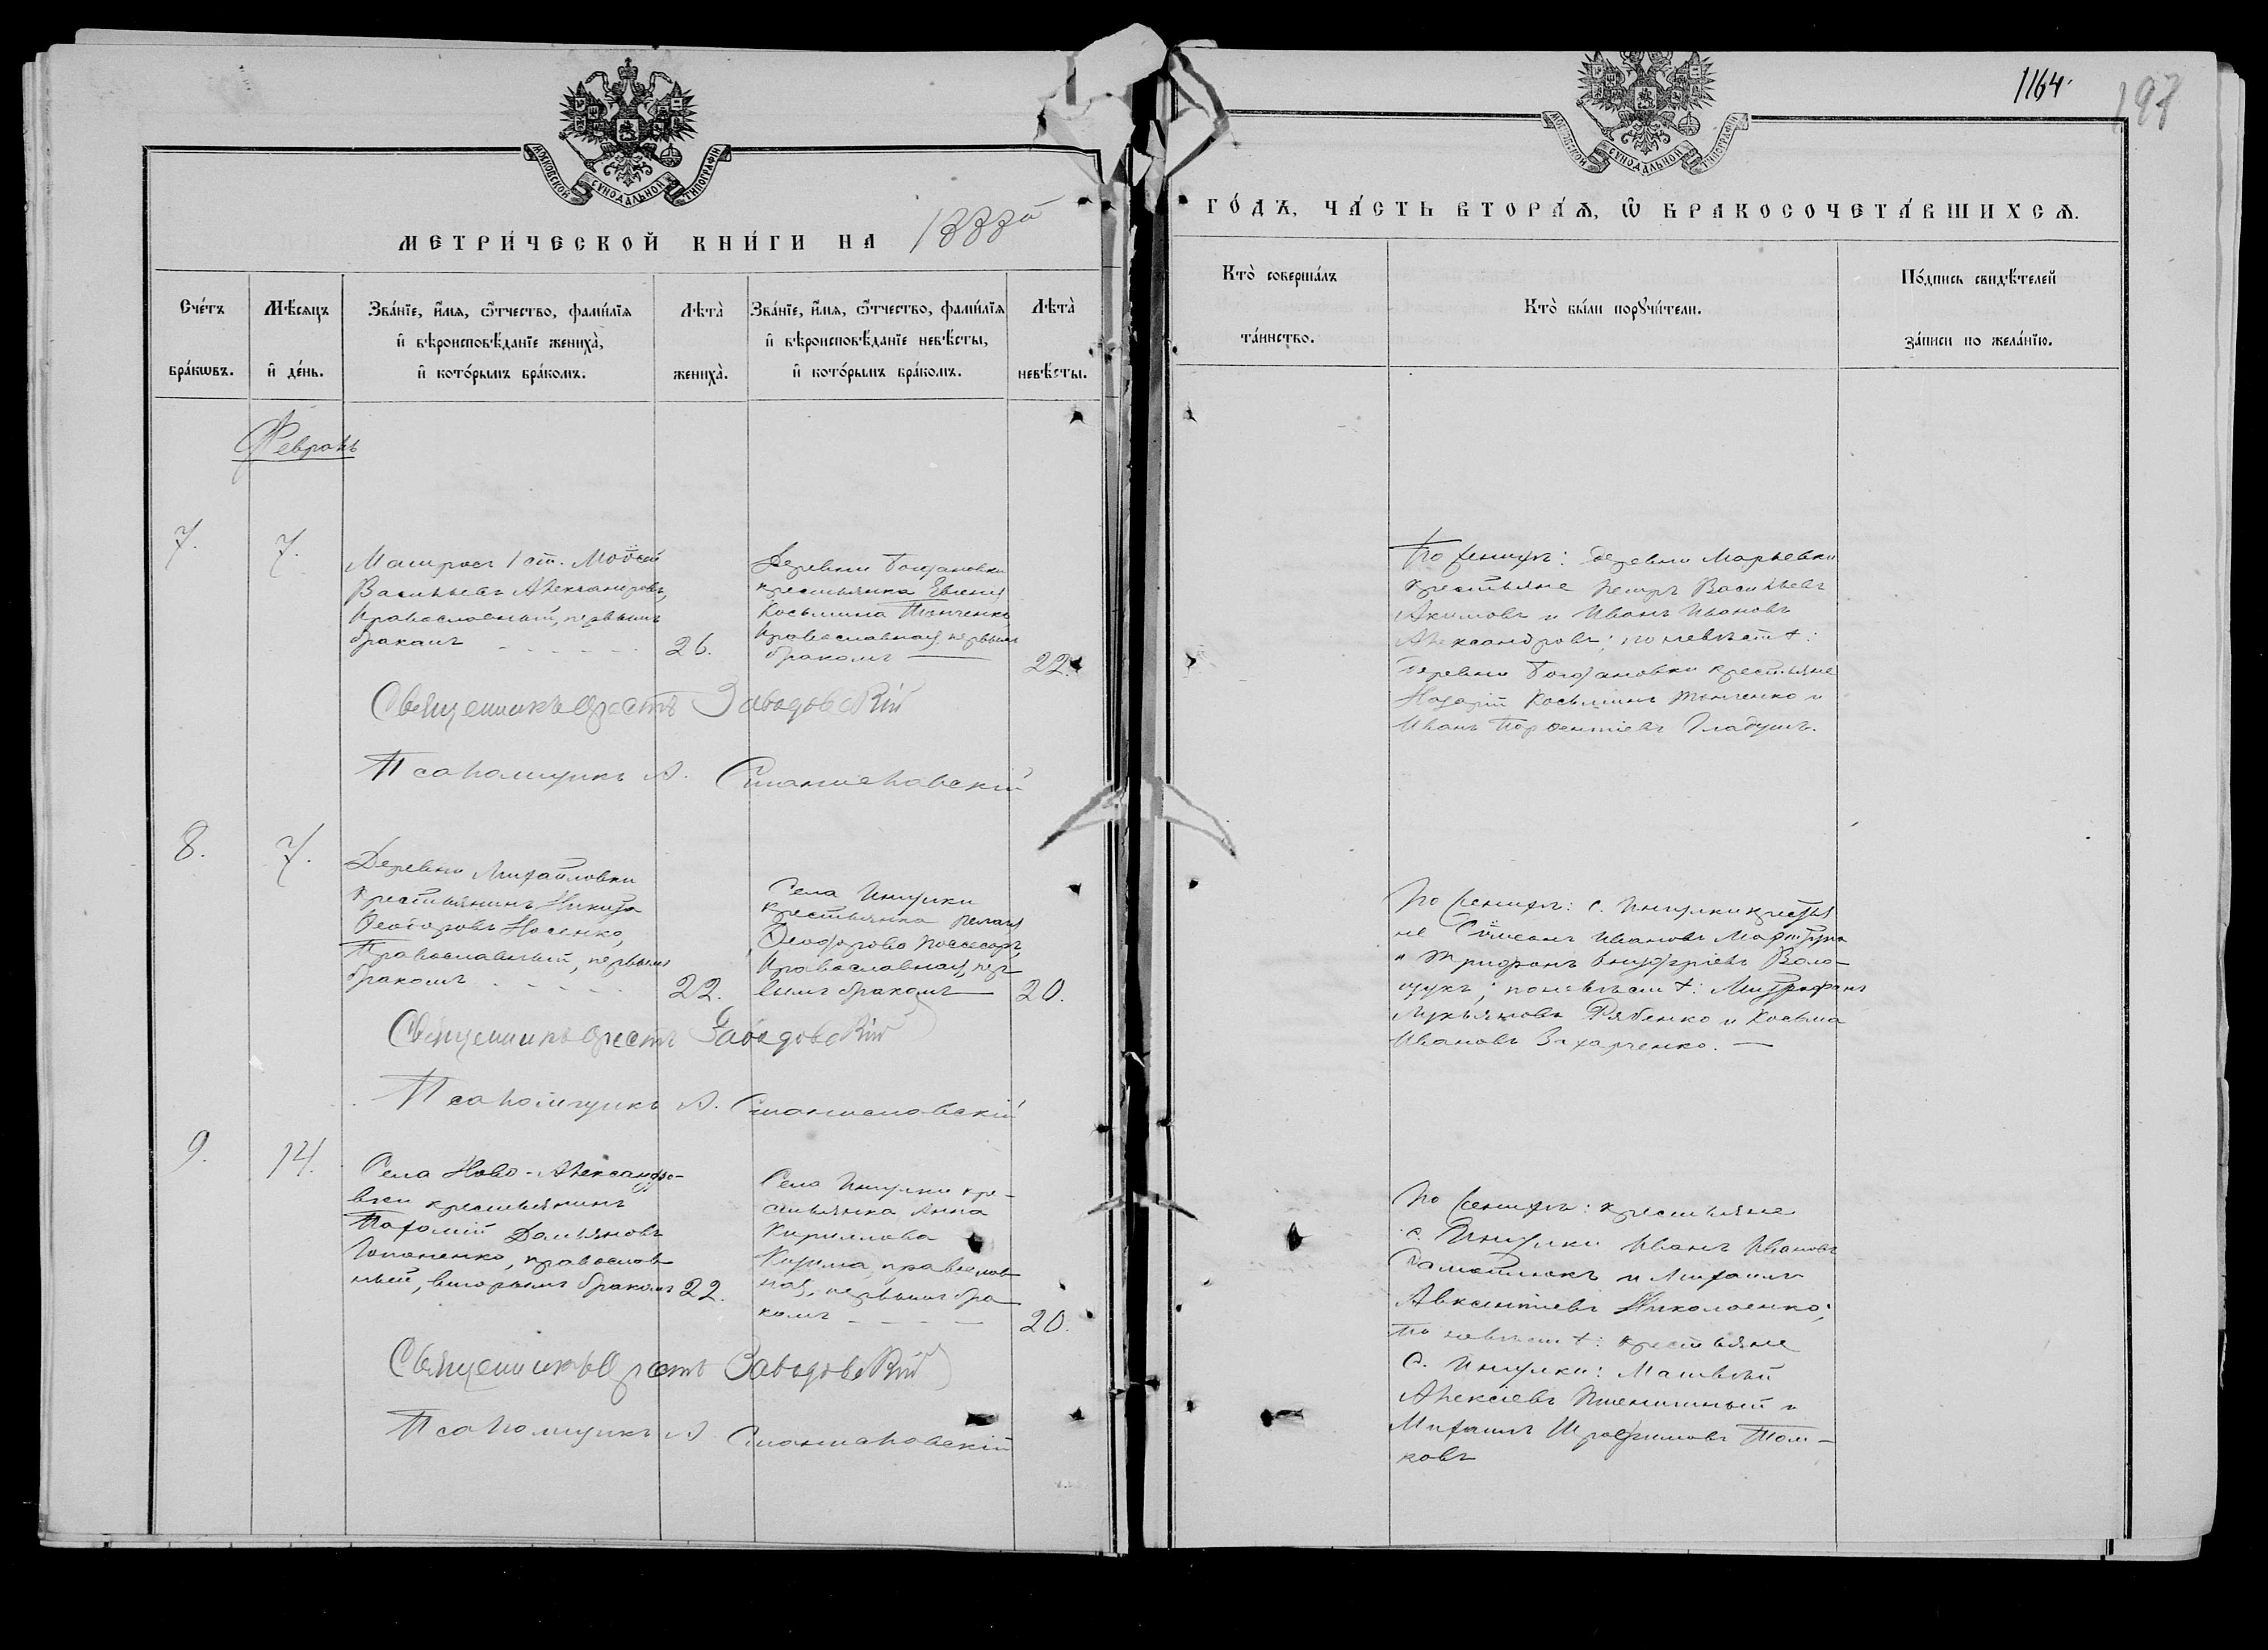 МОСКОВСКОЙ СУНОДАЛЬНОЙ ТИПОГРАФІИ
МЕТРИ́ЧЕСКОЙ КНИ́ГИ НА 1888й
Сче́тъ бра́кѡвъ.
Мѣ́сяцъ и҆ де́нь.
Зва́нїе, и҆́мя, ѻ҆́тчество, фами́лїя
и҆ вѣроисповѣ́данїе жениха̀,
и҆ кото́рымъ бра́комъ.
Лѣ́та жениха̀.
Зва́нїе, и҆́мя, ѻ҆́тчество, фами́лїя
и҆ вѣроисповѣ́данїе невѣ́сты,
и҆ кото́рымъ бра́комъ.
Лѣ́та невѣ́сты.
Февраль
7.
7.
Матросъ 1 ст. Мовсей
Васильевъ Александровъ,
православный, первымъ
бракомъ
26.
Деревни Богдановки
крестьянка Евгенія
Косьмина Тонченко
православная, первымъ
бракомъ
22.
Священникъ Орестъ Завадовскій
Псаломщикъ А. Станиславскій
8.
7.
Деревни Михайловки
крестьянинъ Никита
Ѳеодоровъ Носенко,
Православный, первымъ
бракомъ
22.
Села Ингулки
крестьянка Пелагія
Ѳеодорова
православная, пер-
вымъ бракомъ
20.
Священникъ Орестъ Завадовскій
Псаломщикъ А. Станиславскій
9.
14.
Села Ново-Александро-
вки крестьянинъ
Пахомій Дамьяновъ
православ
ный, вторымъ бракомъ
22.
Села Ингулки кре-
стьянка Анна
Кириллова
православ
ная, первымъ бра
комъ
20.
Священникъ Орестъ Завадовскій
Псаломщикъ А. Станиславскій
1164.
197
МОСКОВСКОЙ СУНОДАЛЬНОЙ ТИПОГРАФІИ
ГО́ДЪ, ЧА́СТЬ ВТОРА́Я, Ѡ҆ БРАКОСОЧЕТА́ВШИХСЯ.
Кто̀ соверша́лъ
та́инство.
Кто̀ бы́ли порꙋчи́тели.
По́дпись свидѣ́телей
за́писи по жела́нїю.
По женихѣ: деревни Марьевки
крестьяне Петръ Васильевъ
Акимовъ и Иванъ Ивановъ
Александровъ; по невѣстѣ:
деревни Богдановки крестьяне
Назарій Косьминъ Тонченко и
Иванъ Парѳентіевъ Гладушъ.
По женихѣ: с. Ингулки крестья
не Сѵмеонъ Ивановъ
и Трифонъ Онуфріевъ Воло-
щукъ; по невѣстѣ: Митрофанъ
Лукьяновъ Рябенко и Косьма
Ивановъ Захарченко.
По женихѣ: крестьяне
с. Ингулки Иванъ Ивановъ
и Михаилъ
Авксентіевъ Николаенко;
по невѣстѣ: крестьяне
с. Ингулки: Матвѣй
Алексіевъ Пшеничный и
Михаилъ Трофимовъ Том-
ковъ